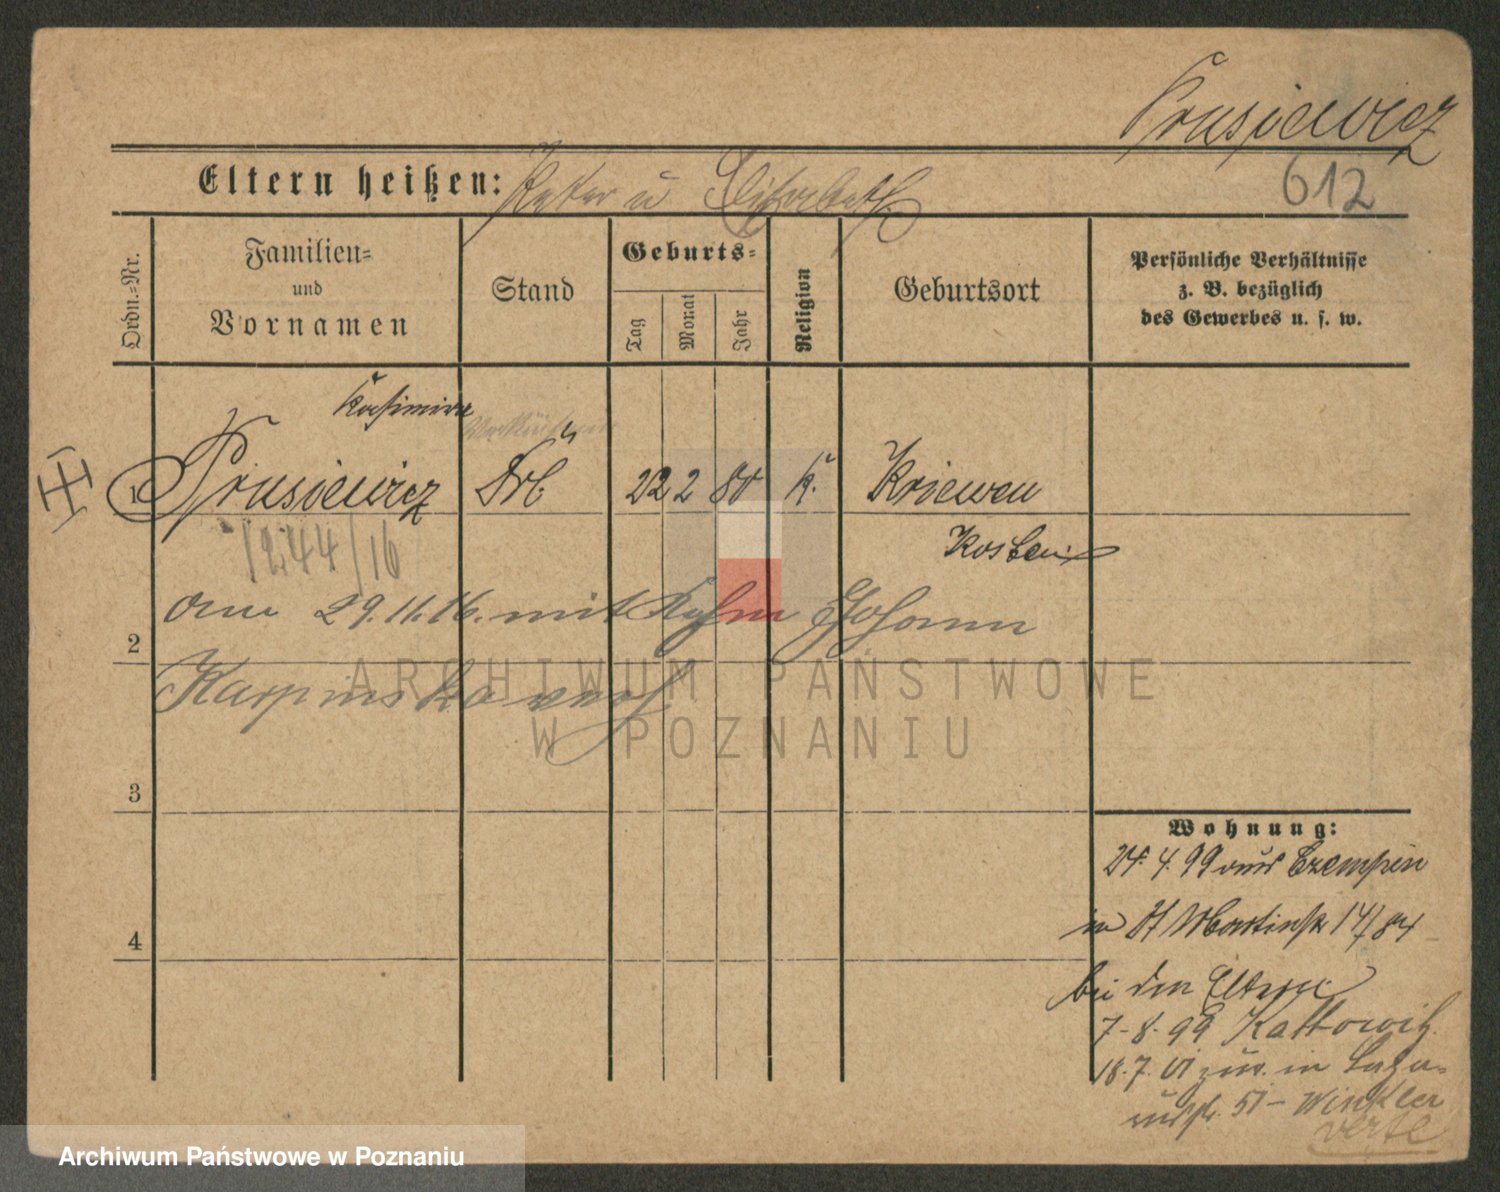 Prusiewicz
612
Eltern heißen: Peter u Elisabeth
Ordn.-Nr.
Familien-
und
Vornamen
Stand
Geburts-
Tag
Monat
Jahr
Religion
Geburtsort
Persönliche Verhältnisse
z. B. bezüglich
des Gewerbes u. s. w.
Kasimira
1 Prusiewicz 22 2 80 k. Kriewen
Kosten
1244/16
am 29.11.16. mit Johann
2
Karpinski verh
3
4
Wohnung:
24. 4. 99 aus Czempin
in St Martinstr 14/84
bei den Eltern
7-8-99 Kattowitz.
18.7.01 zur. in
51- Winkler
verte
ARCHIWUM PAŃSTWOWE
W POZNANIU
Archiwum Państwowe w Poznaniu